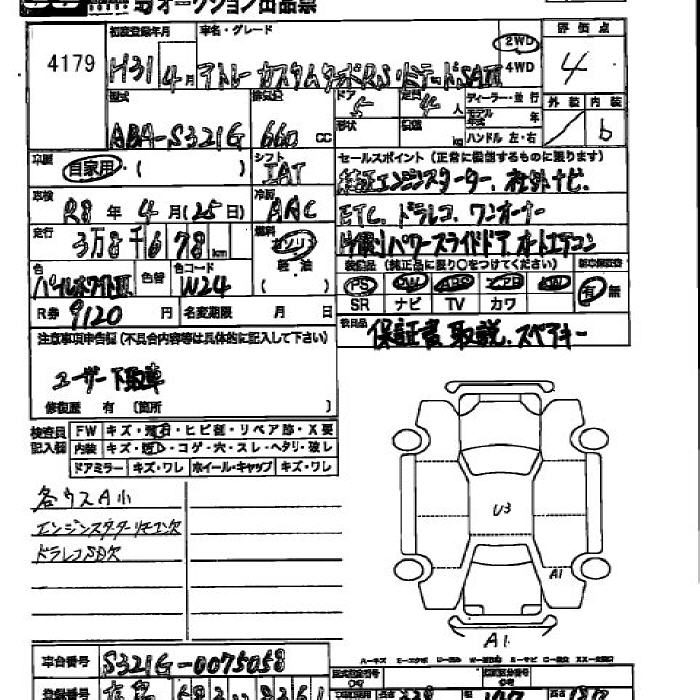 オークション出品票
4179
初度登録年月 車名・グレード 評価点
H31 4月 アトレー カスタムターボRS・リミテッドSAⅢ 2WD 4WD 4
型式 排気量 ドア 定員 ディーラー・並行 外装 内装
ABA-S321G 660 CC 5 4人 モデル年式 年 b
形状 積載 kg ハンドル 左・右
自家用・( ) シフト セールスポイント(正常に機能するものに限ります)
IAT 純正エンジンスターター、社外ナビ、
車検 冷房
R8年4月(25日) AAC ETC、ドラレコ、ワンオーナー
走行 燃料 片側パワースライドドア、オートエアコン
3万8千678km ガソリン 軽油 ( )
色 色替 色コード 装備品(純正品に限り〇をつけてください)
パールホワイトⅢ W24 PS PW ABS エアB AW 有 無
SR ナビ TV カワ
R券 9120円 名変期限 月 日
後日品 保証書、取説、スペアキー
注意事項申告欄(不具合内容等は具体的に記入して下さい)
ユーザー下取車
修復歴 有(箇所 )
検査員記入欄 FW キズ・飛石・ヒビ割・リペア跡・X要
内装 キズ・汚レ・コゲ・穴・スレ・ヘタリ・破レ
ドアミラー キズ・ワレ ホイール・キャップ キズ・ワレ
各ウスA小
エンジンスターターリモコン欠
ドラレコSD欠
U3
A1
A1
車台番号 S321G-0075058
登録番号